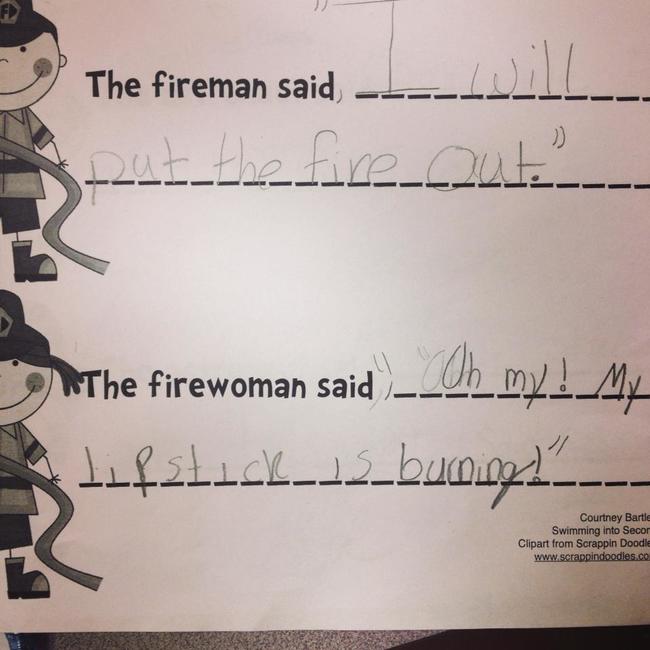 The fireman said, "I will
put the fire out."
The firewoman said, "Oh my! My
lipstick is burning!"
Courtney Bartle
Swimming into Secon
Clipart from Scrappin Doodle
www.scrappindoodles.co